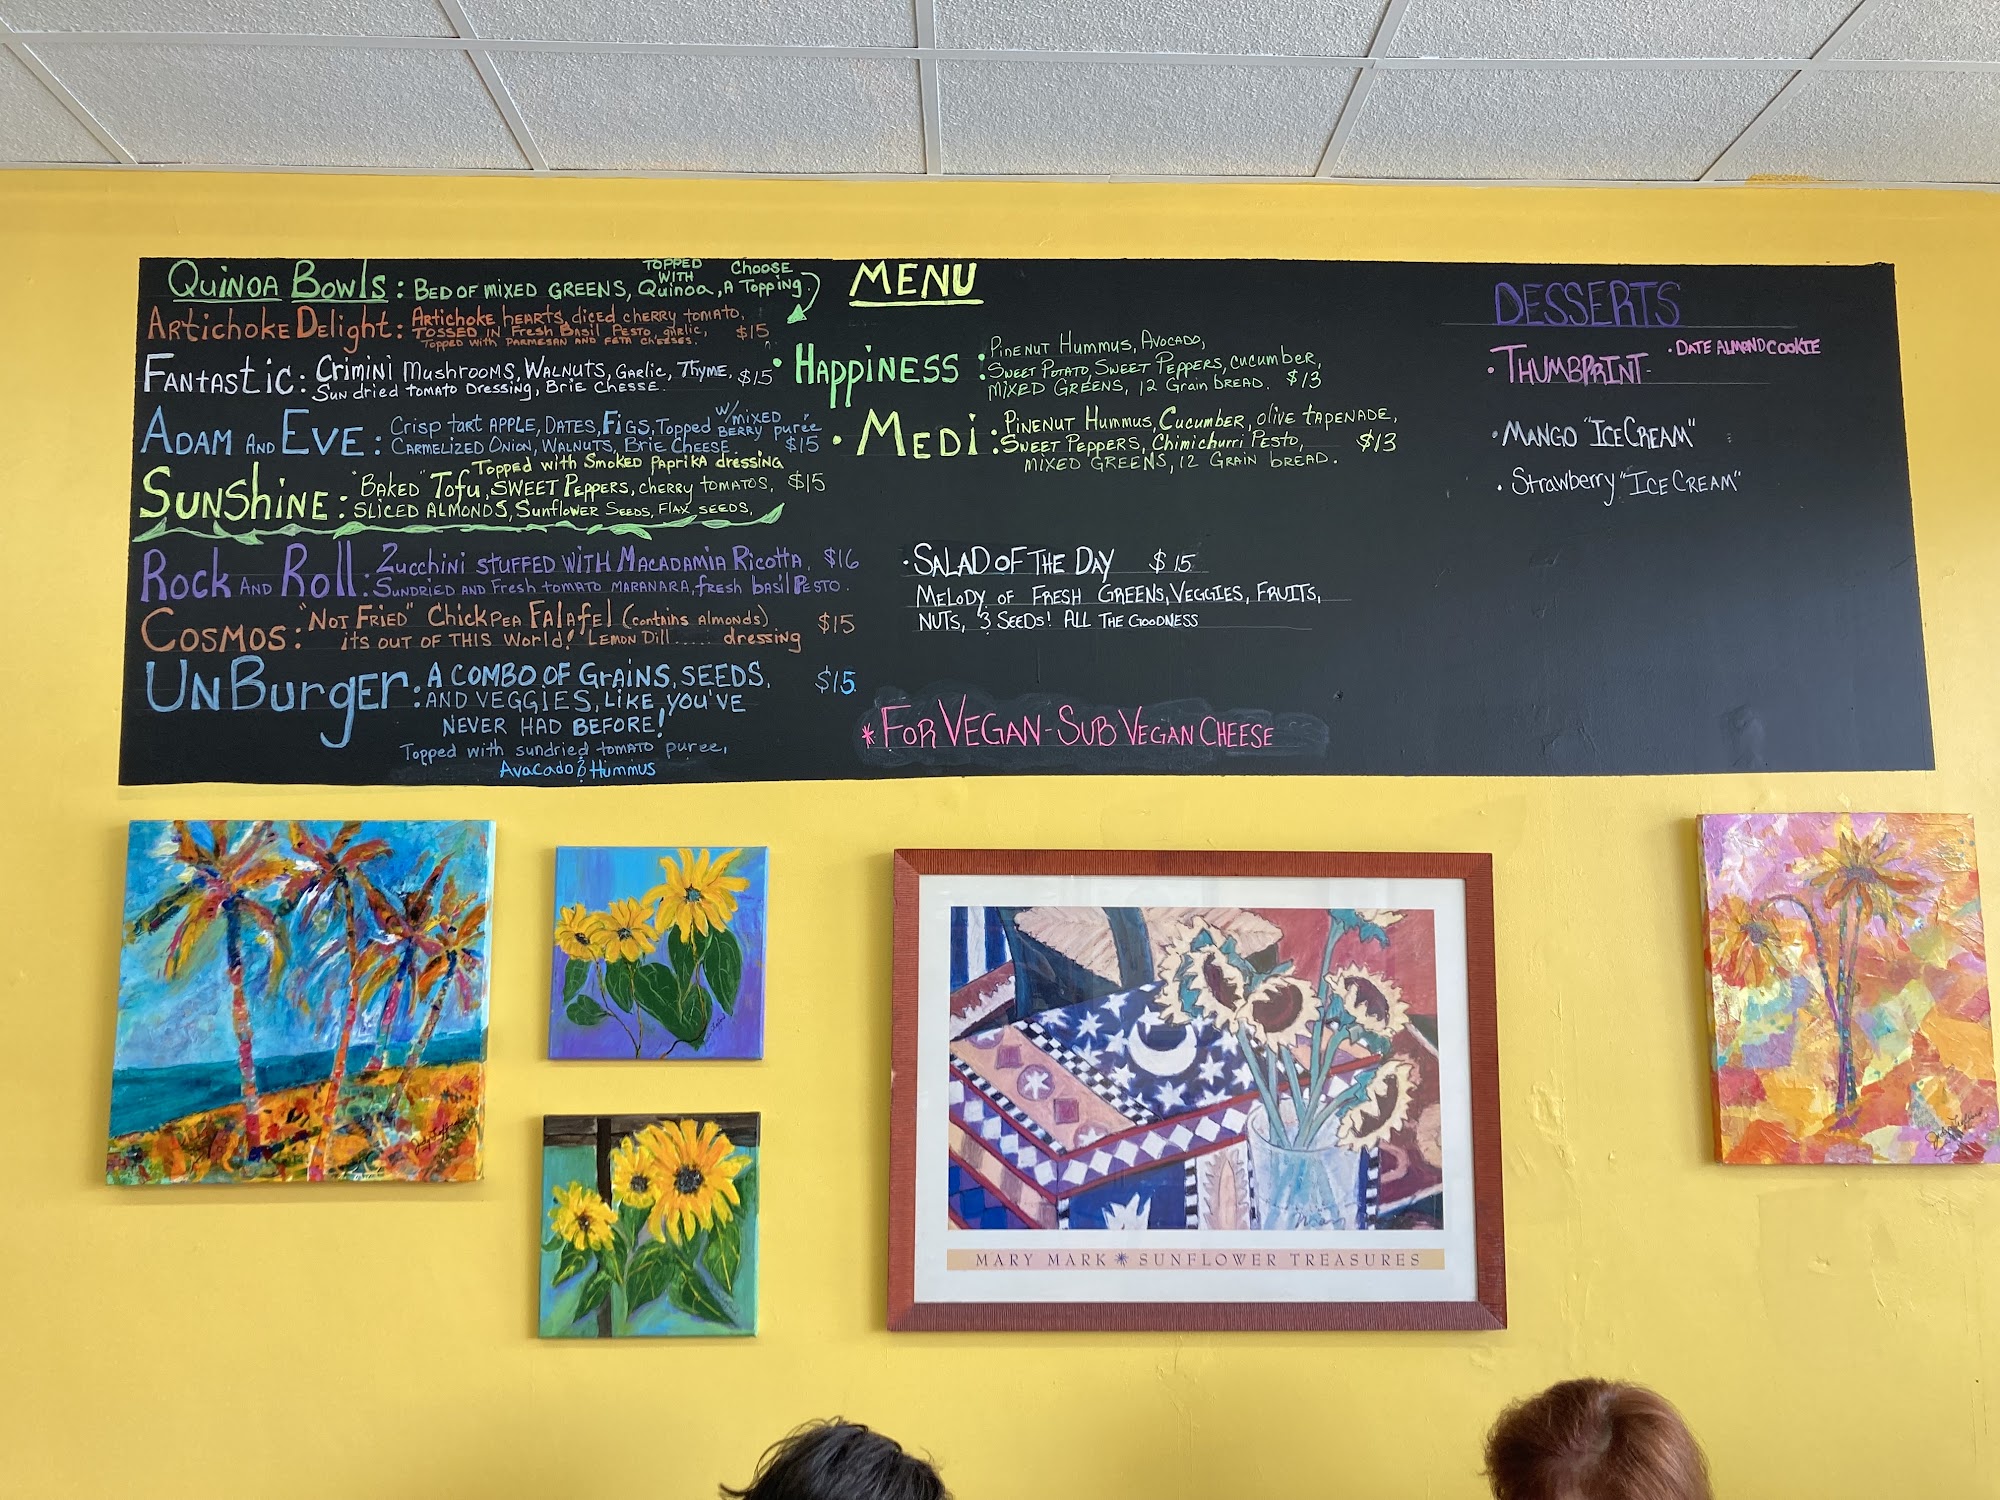 Quinoa Bowls: Bed of mixed greens, topped with Quinoa, Choose A Topping.
Artichoke Delight: Artichoke hearts, diced cherry tomato, $15
Tossed in Fresh Basil Pesto, garlic,
Topped with Parmesan and feta cheeses.
Fantastic: Crimini Mushrooms, Walnuts, Garlic, Thyme, $15
Sun dried tomato Dressing, Brie Chesse.
Adam and Eve: Crisp tart apple, Dates, Figs, Topped w/mixed Berry purée
Carmelized Onion, Walnuts, Brie Cheese. $15
Topped with Smoked Paprika dressing
Sunshine: "Baked" Tofu, Sweet Peppers, cherry tomatos, $15
Sliced Almonds, Sunflower Seeds, Flax seeds.
Rock and Roll: Zucchini stuffed with Macadamia Ricotta, $16
Sundried and Fresh tomato maranara, fresh basil Pesto.
Cosmos: "Not Fried" Chickpea Falafel (contains Almonds) $15
its out of this world! Lemon Dill..... dressing
UnBurger: A combo of Grains, Seeds, $15
and veggies, like you've
never had before!
Topped with sundried tomato puree,
Avocado & Hummus
MENU
• Happiness: Pinenut Hummus, Avocado,
Sweet Potato, Sweet Peppers, cucumber,
Mixed Greens, 12 Grain bread. $13
• Medi: Pinenut Hummus, Cucumber, olive tapenade,
Sweet Peppers, Chimichurri Pesto, $13
Mixed Greens, 12 Grain bread.
• Salad of the Day $15
Melody of Fresh Greens, Veggies, Fruits,
Nuts, & Seeds! All the Goodness
* For Vegan - Sub Vegan Cheese
DESSERTS
• Thumbprint - • Date Almond Cookie
• Mango "Ice Cream"
• Strawberry "Ice Cream"
MARY MARK * SUNFLOWER TREASURES